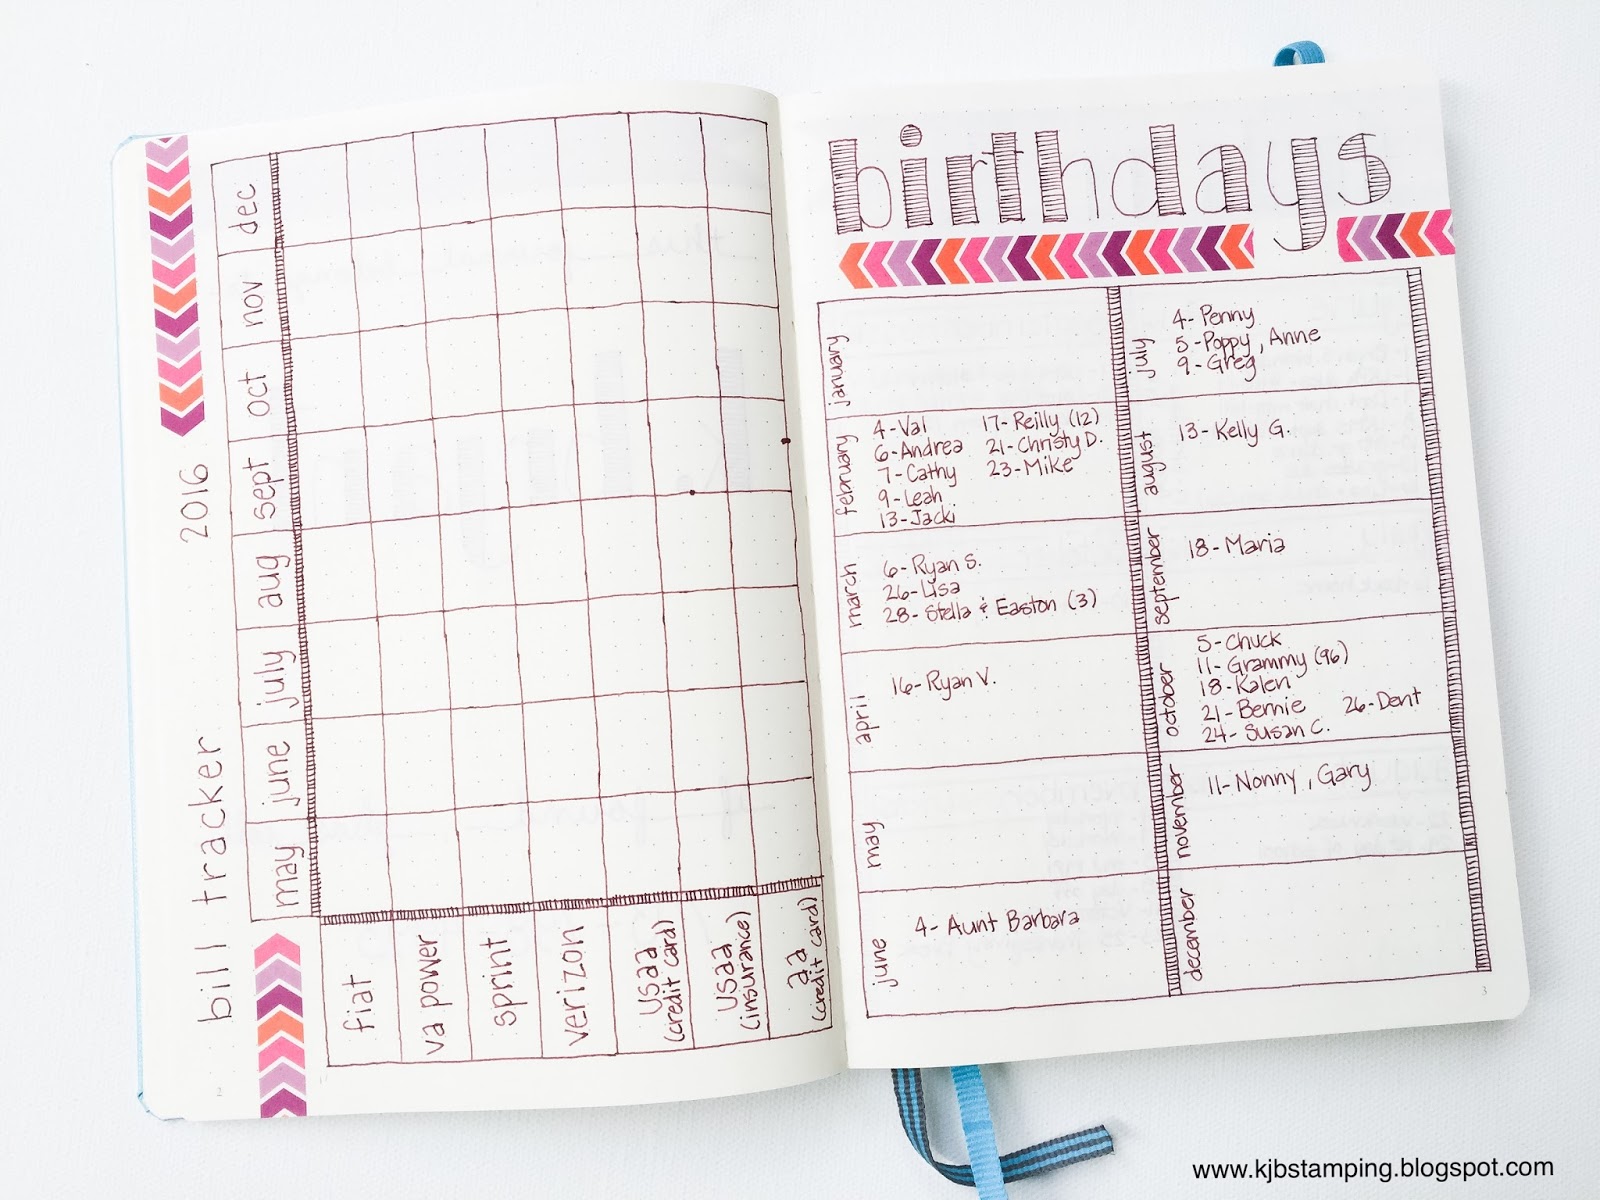 bill tracker 2016
may
june
july
aug
sept
oct
nov
dec
fiat
va power
sprint
verizon
usaa
(credit card)
usaa
(insurance)
aa
(credit card)
2
birthdays
january
february
4-Val
6-Andrea
7-Cathy
9-Leah
13-Jacki
17-Reilly (12)
21-Christy D.
23-Mike
march
6-Ryan S.
26-Lisa
28-Stella & Easton (3)
april
16-Ryan V.
may
june
4- Aunt Barbara
july
4- Penny
5-Poppy, Anne
9-Greg
august
13- Kelly G.
september
18- Maria
october
5-Chuck
11- Grammy (96)
18-Kalen
21-Bernie
24- Susan C.
26-Dent
november
11-Nonny, Gary
december
3
www.kjbstamping.blogspot.com